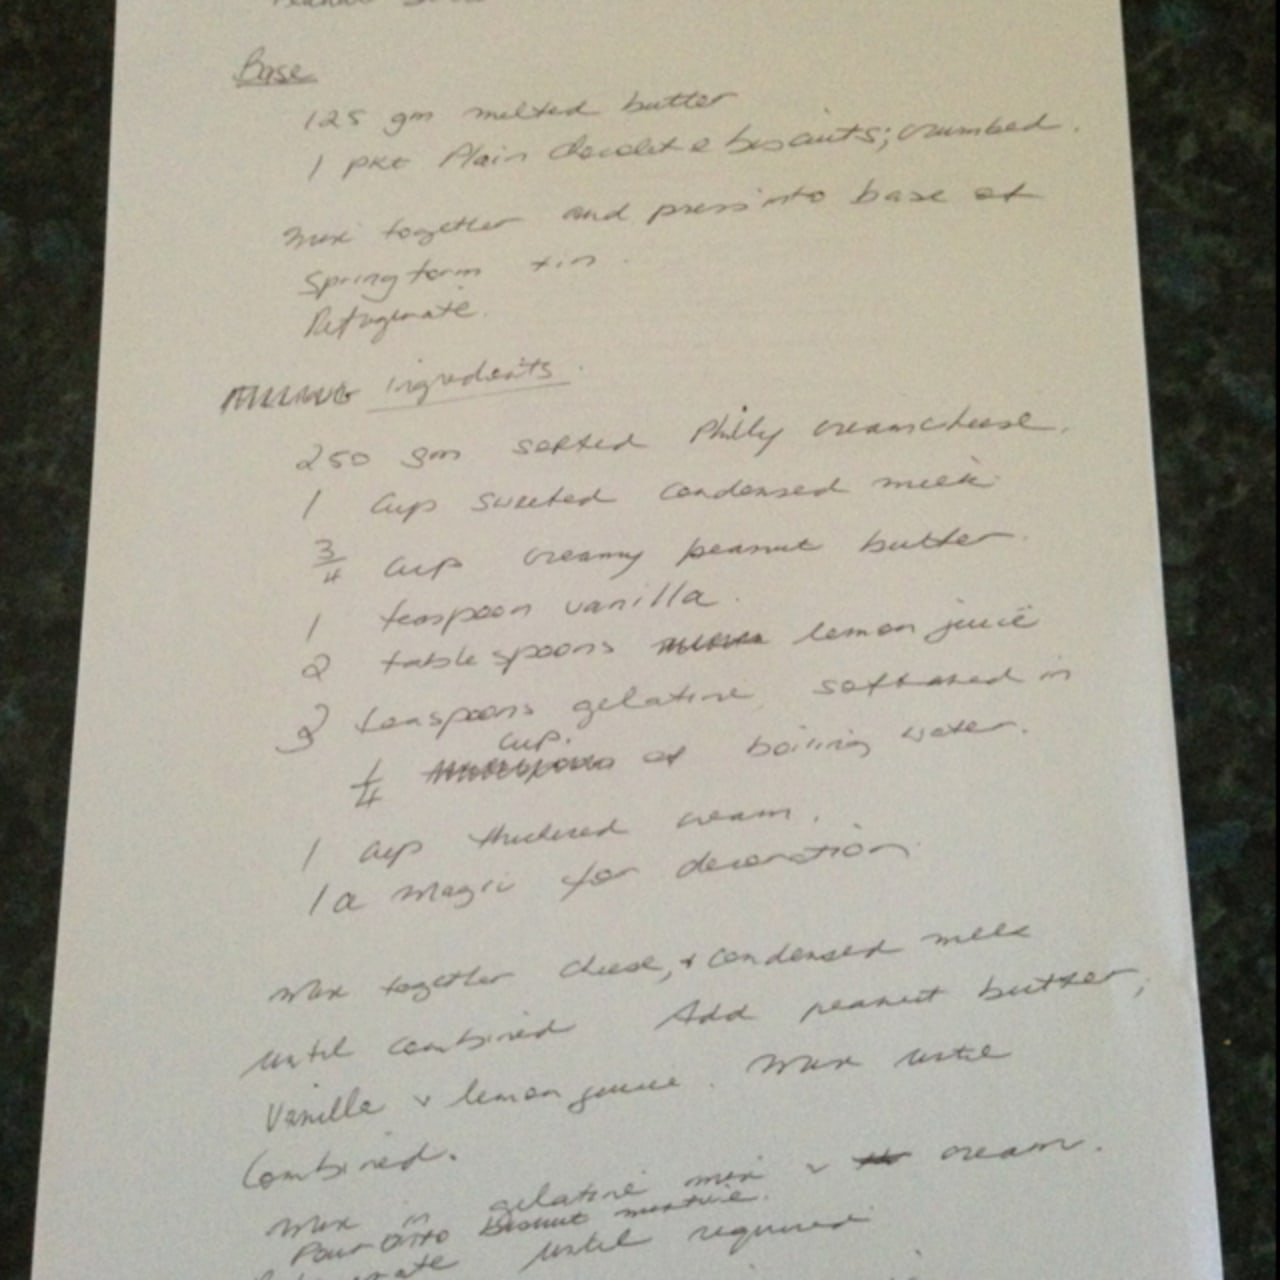 Base
125 gm melted butter
1 pkt Plain chocolate biscuits; crumbed.
Mix together and press into base of
Springform tin.
Refrigerate.
Filling ingredients.
250 gm softed Philly creamcheese.
1 cup sweeted condensed milk
3/4 cup creamy peanut butter.
1 teaspoon vanilla.
2 tablespoons lemon juice
3 teaspoons gelatine softened in
cup.
1/4 of boiling water.
1 cup thickened cream.
1 a magic for decoration
Mix together cheese, + condensed milk
until combined Add peanut butter,
Vanilla + lemon juice. Mix until
Combined.
Mix in gelatine mix + cream.
Pour onto biscuit mixture.
until required